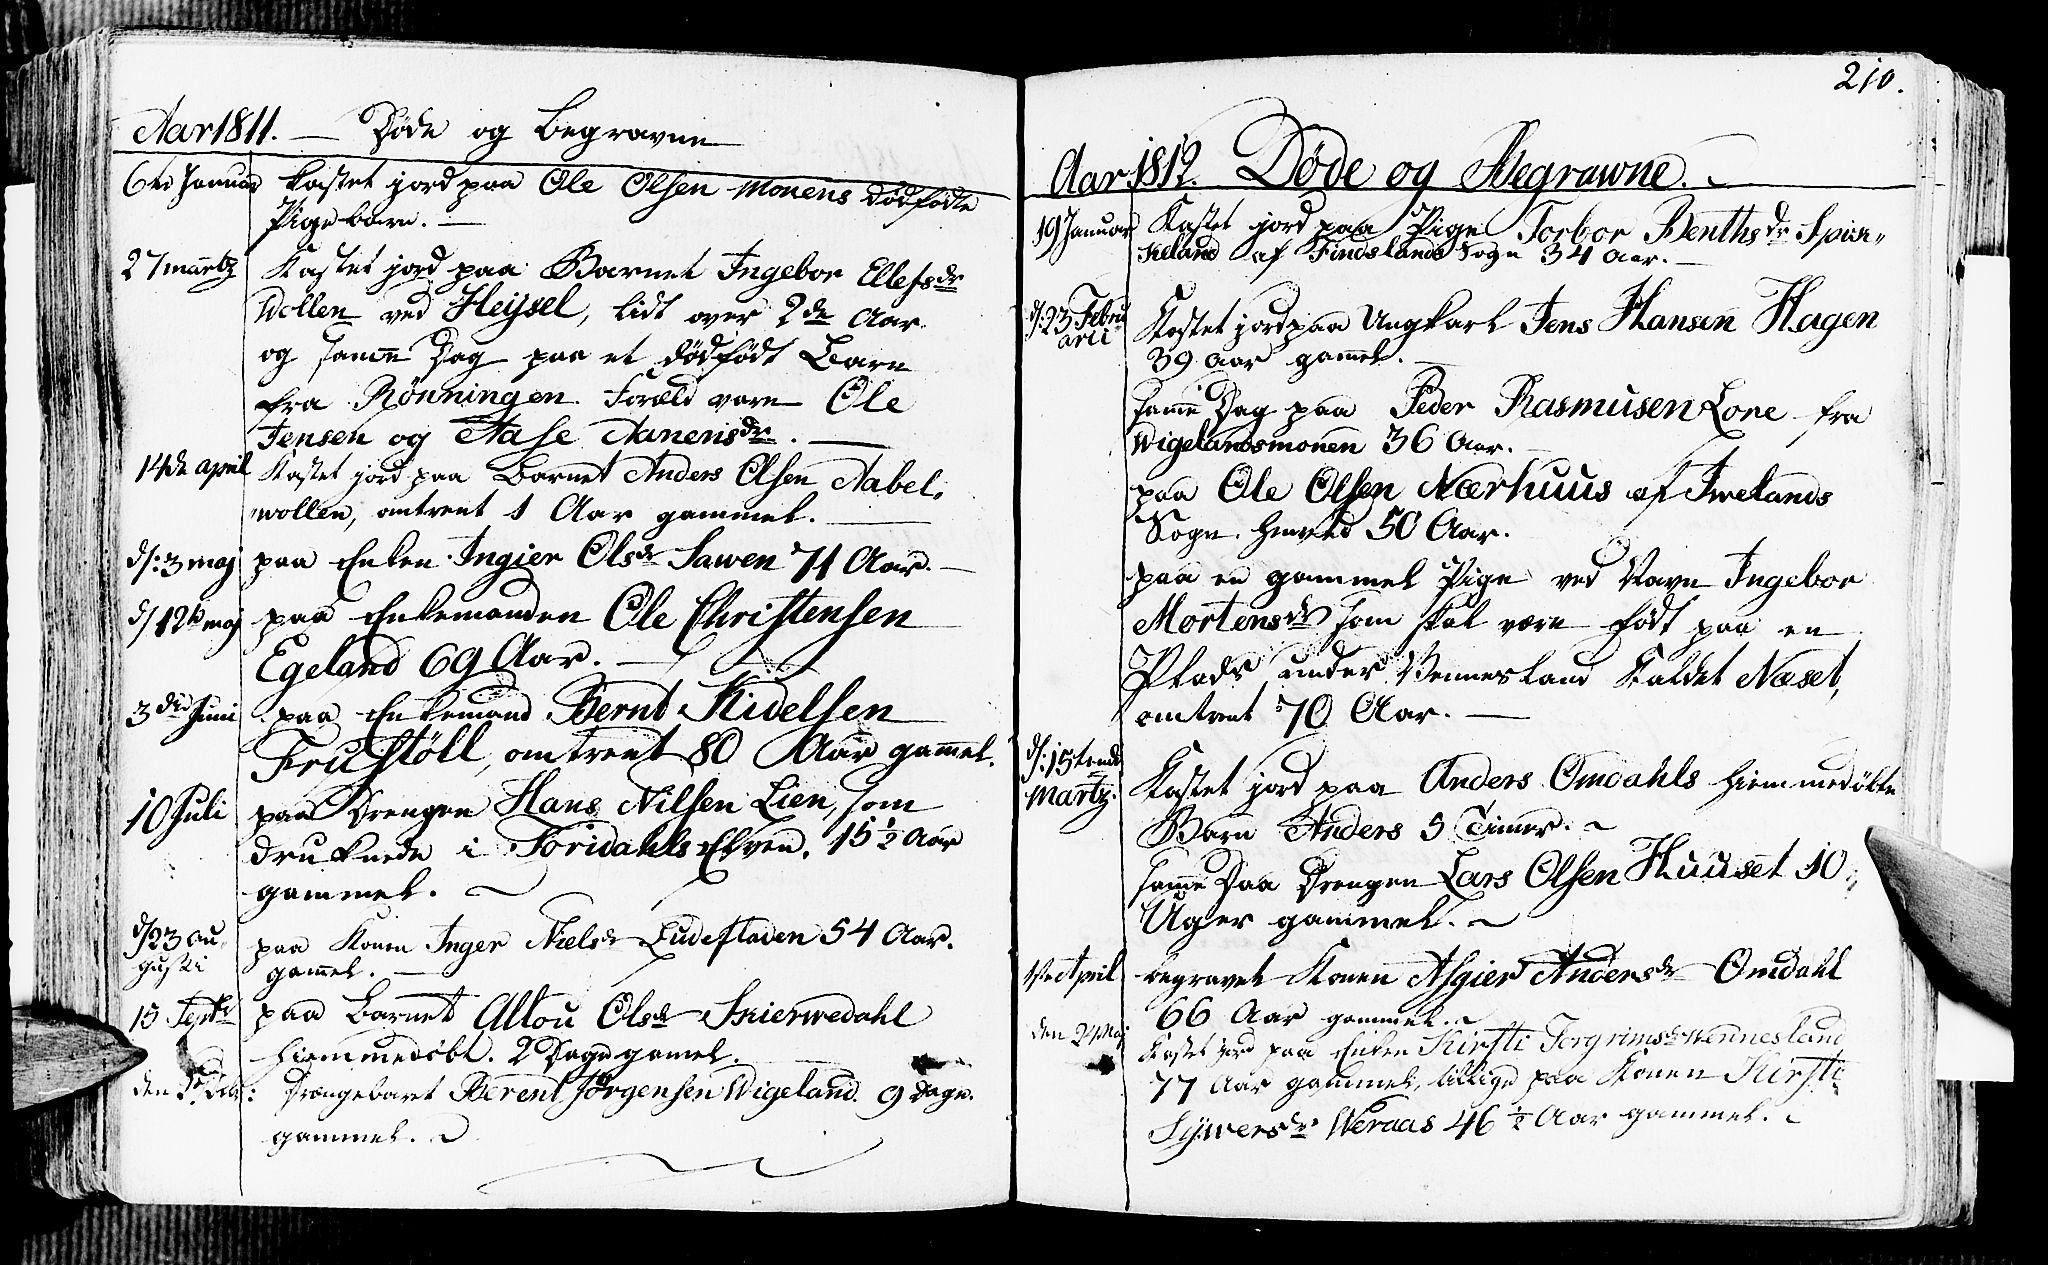 Aar 1811. — Døde og begravne
6te Januar kastet jord paa Ole Olsen Monens dødfødte
Pigebarn. —
27 martz Kastet jord paa Barnet Ingebor Ellefsdr
Wollen ved Heysel, lidt over 2de Aar
og samme Dag paa et dødfødt Barn
fra Rönningen. Foræld vare Ole
Jensen og Aase Aanensdr. —
14de april Kastet jord paa Barnet Anders Olsen Aabel-
wollen, omtrent 1 Aar gammel. —
d: 3 maj paa Enken Ingier Olsdr Sawen 71 Aar. —
d 12te maj paa Enkemanden Ole Christensen
Egeland 69 Aar. —
3die Juni paa Enkemand Bernt Kidelsen
Fruestöll, omtrent 80 Aar gammel.
10 Juli paa Drengen Hans Nilsen Lien, som
druknede i Toridahls Elven. 15 1/2 Aar
gammel.
d 23 au-
gusti paa Konen Inger Nielsdr Ludefladen 54 Aar.
gamel. —
15 Septbr paa Barnet Allou Olsdr Skierwedahl
hiemmedöbt. 2 Dage gamel.
den Drengebaret Berent Jörgensen Wigeland. 9 dage.
gammel.
210.
Aar 1812. Döde og Begrawne.
19 Januar Kastet jord paa Pige Torbor Benthsdr Spir-
keland af Findslands Sogn 34 Aar. —
d: 23 Febru
arii Kastet jord paa Ungkarl Jens Hansen Hagen
39 Aar gamel. —
samme Dag paa Peder Rasmusen Lone fra
Wigelandsmonen 36 Aar. —
paa Ole Olsen Nærhuus af Iwelands
Sogn. henved 50 Aar.
paa en gammel Pige ved Navn Ingebor
Mortensdr som skal være født paa en
Plads under Vennesland Kaldet Næset,
omtrent 70 Aar. —
d: 15tende
Martz. Kastet jord paa Anders Omdahls hiemmedöbte
Barn Anders 5 Timer.
samme Daa Drengen Lars Olsen Huuset 10
Uger gammel.
April begravet Konen Asgier Andersdr Omdahl
66 Aar gammel.
den 2 Maj Kastet jord paa Enken Kirsti Torgrimsdr Wennesland
77 Aar gammel, tillige paa Konen Kirsti
Sywersdr Weraas 46 1/2 Aar gammel.